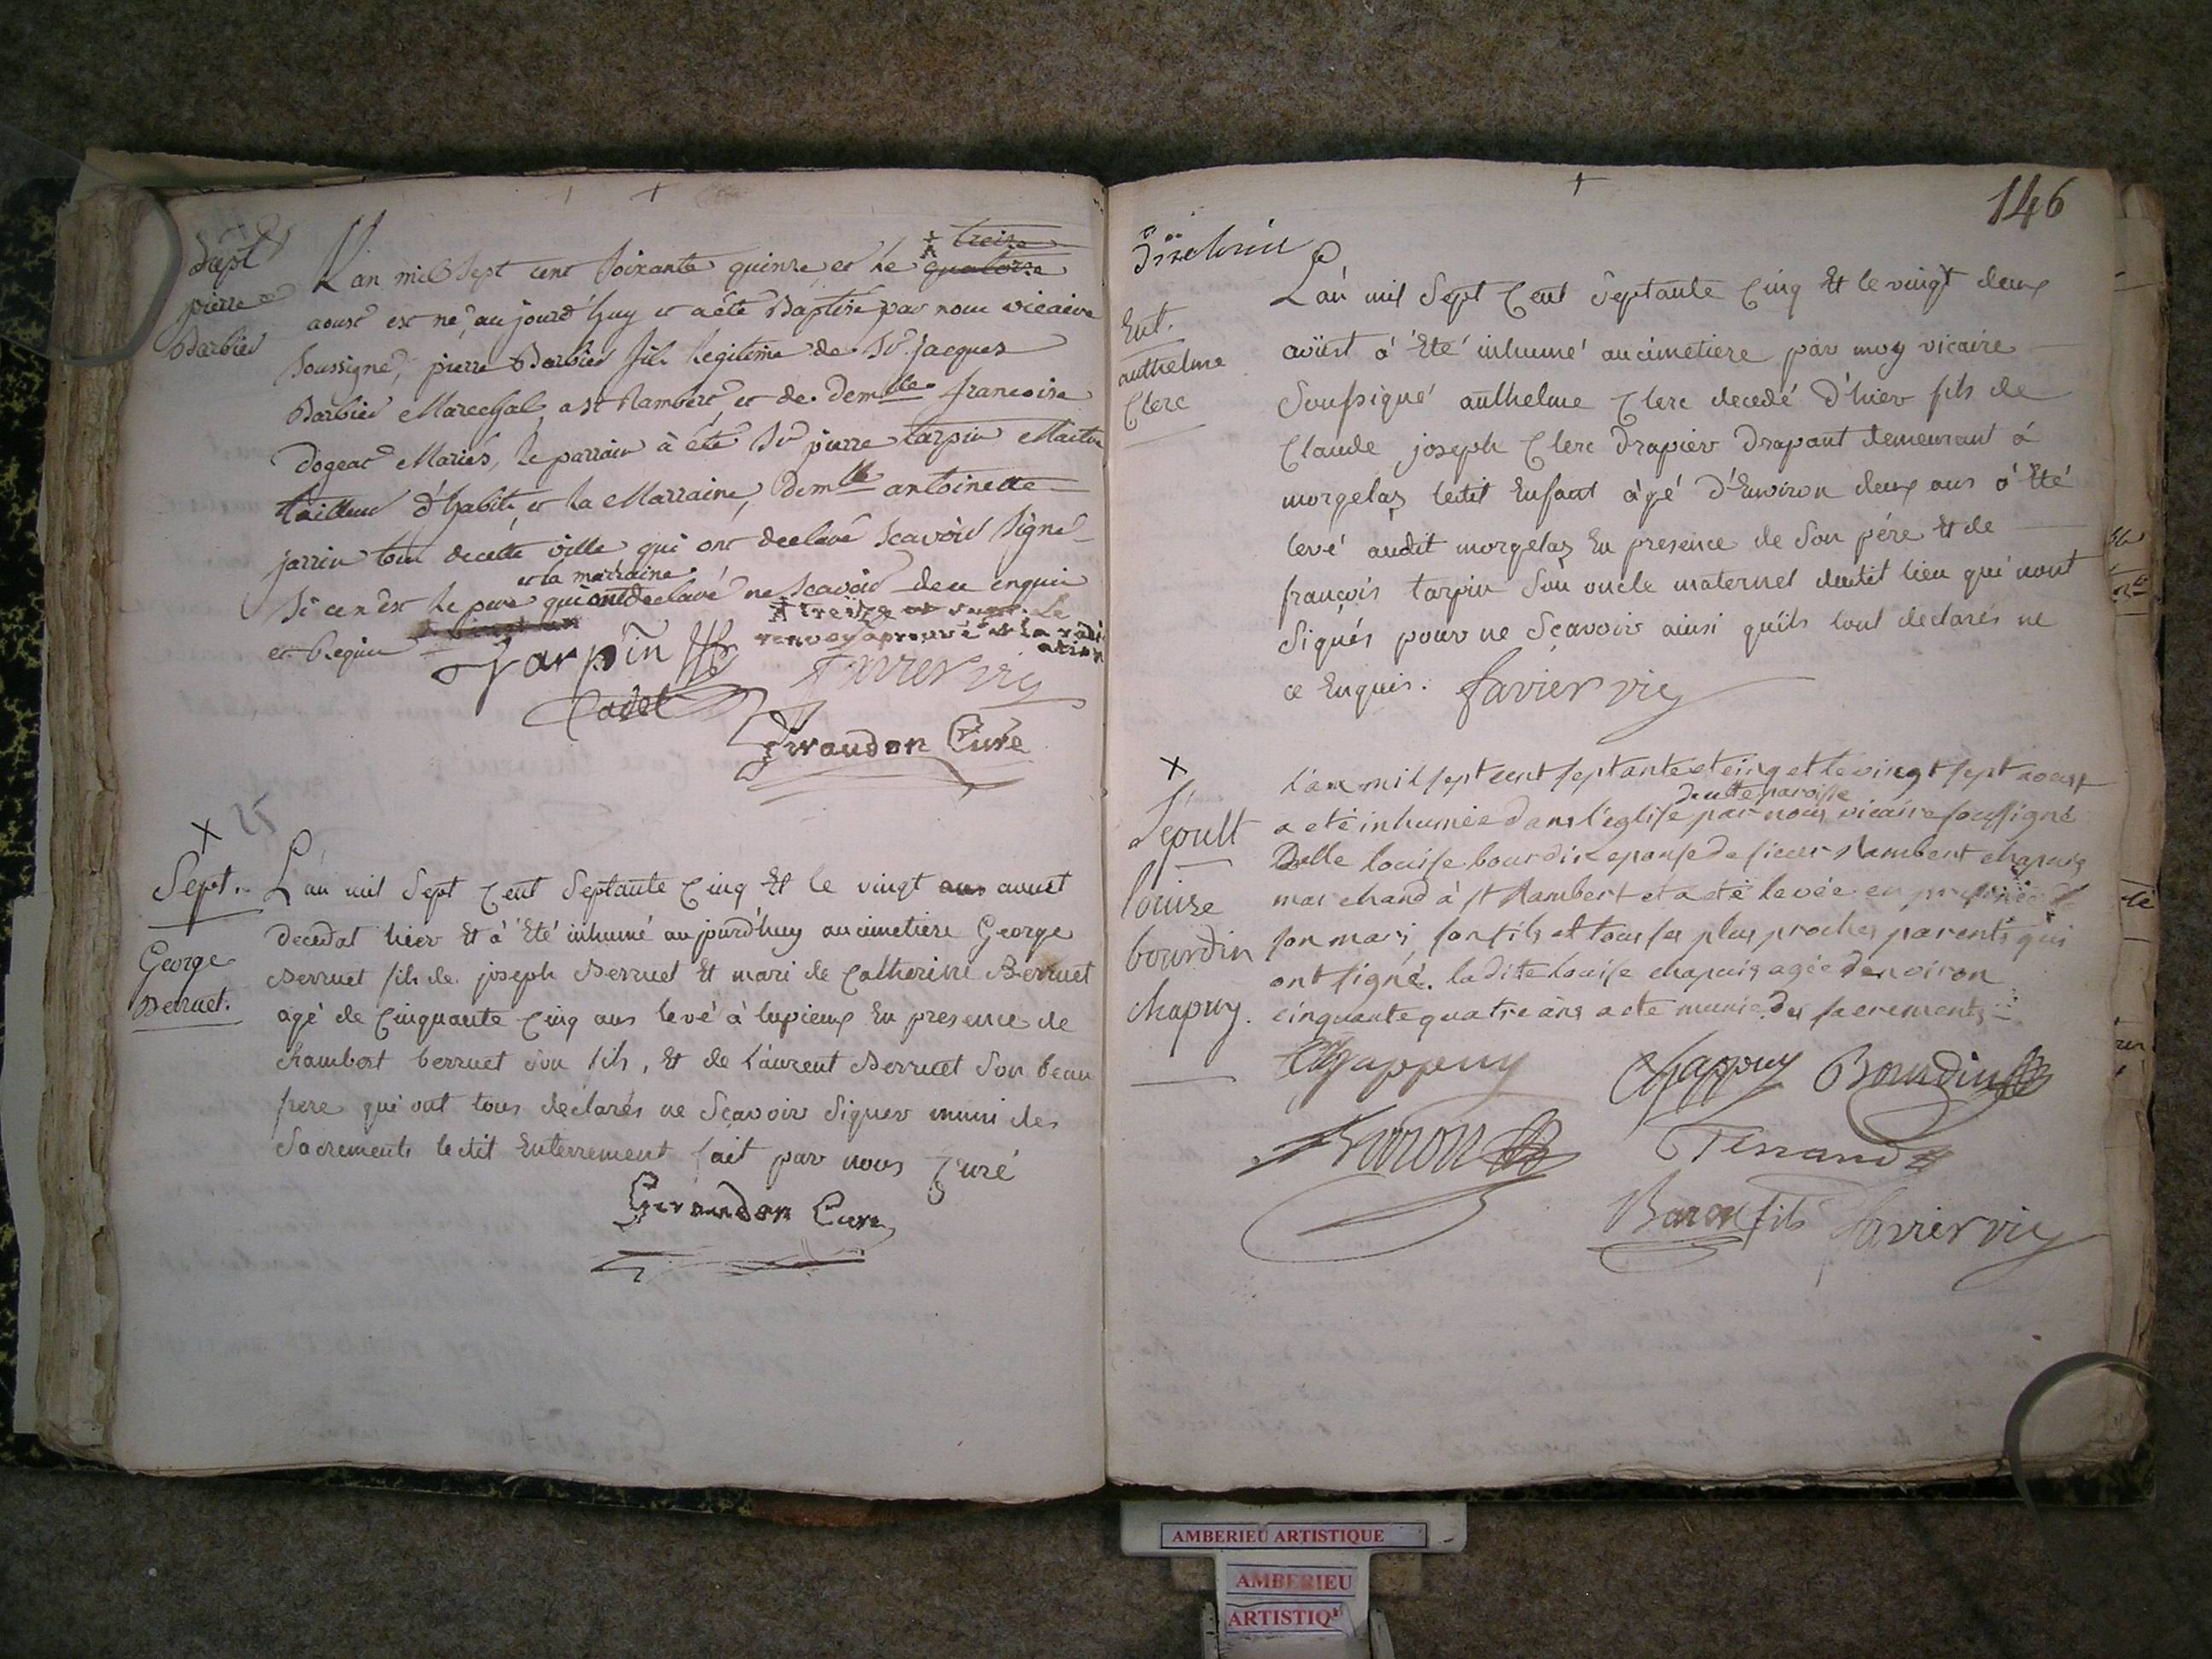 Bapt
pierre
Barbier
treize
L'an mil sept cent soixante quinze et le quatorze
aoust est né, aujourd'huy et a été Baptisé par nous vicaire
soussigné, pierre Barbier fils légitime de Sr. jacques
Barbier Marechal a St Rambert et de demlle francoise
dogeat Mariés, le parrain à été Sr pierre tarpin Maitre
tailleur d'habits et la Marraine, demlle antoinette
jarrin tous de cette ville qui ont declaré scavoir signé
et la marraine
si ce n'est le pere qui ont declaré ne scavoir de ce enquis
et requis
treize Le
renvoy aprouvé et la radi
ation
tarpin
Favier vic
Cadet
Giraudon Curé
25
Sept.
George
Berruet.
L'an mil Sept Cent Septante Cinq Et le vingt ans aoust
decedat hier Et à Eté inhumé aujourdhuy au cimetiere George
Berruet fils de joseph Berruet Et mari de Catherine Berruet
agé de Cinquante Cinq ans levé à lupieux En presence de
Rambert berruet son fils, Et de Laurent Berruet Son beau
frere qui ont tous déclarés ne Sçavoir Signer muni des
Sacrements le dit Enterrement fait par nous Curé
Giraudon Curé
146
Ent.
anthelme
Clerc
L'an mil Sept Cent Septante Cinq Et le vingt deux
aoüst à Eté inhumé au cimetiere par moy vicaire
Soussigné anthelme Clerc decedé d'hier fils de
Claude joseph Clerc drapier drapant demeurant á
morgelas ledit Enfant àgé d'Environ deux ans á Eté
levé audit morgelas En presence de Son pére Et de
francois tarpin Son oncle maternel dudit lieu qui nont
Signés pour ne Sçavoir ainsi qu'ils lont declarés ne
ce Enquis. Favier vic
Sepult
louise
bourdin
chapuy.
L'an mil sept cent septante et cinq et le vingt sept aoust
de cette paroisse
a eté inhumée dans l'église par nous vicaire soussigné
Delle louise bourdin epouse de sieur Rambert chapuis
marchand à st Rambert et a eté levée en presence de
son mari, son fils et tous ses plus proches parents qui
ont signé. la dite louise chapuis agée denviron
cinquante quatre ans a eté munie des sacrements
Chappuy
Chappuy Bourdin
Buron
Tenand
Baron fils Favier vic
AMBERIEU ARTISTIQUE
AMBERIEU
ARTISTIQ